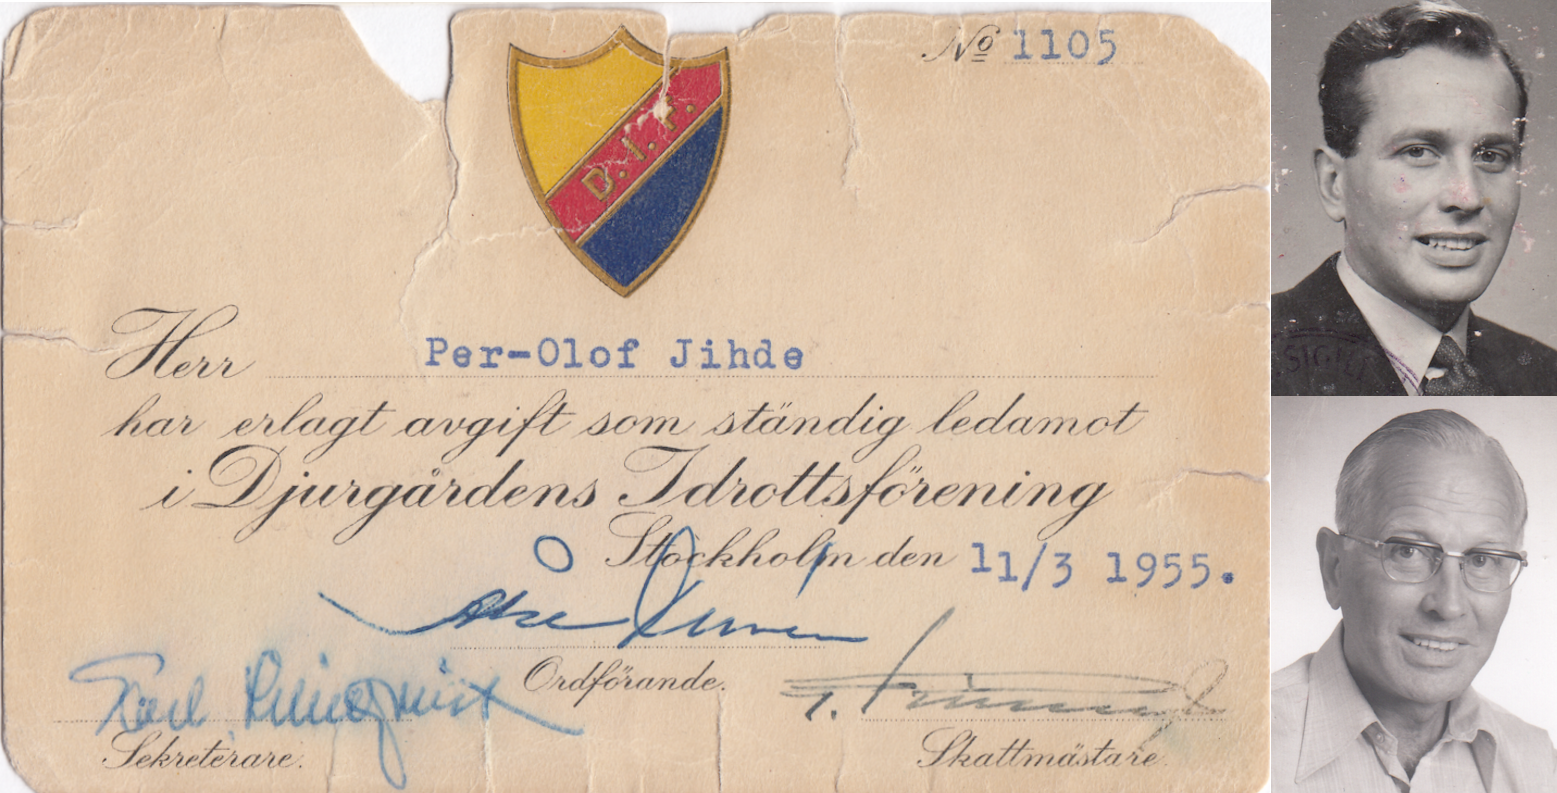 Nº 1105
D.I.F.
Herr Per-Olof Jihde
har erlagt avgift som ständig ledamot
i Djurgårdens Idrottsförening
Stockholm den 11/3 1955.
Ordförande.
Sekreterare.
Skattmästare.